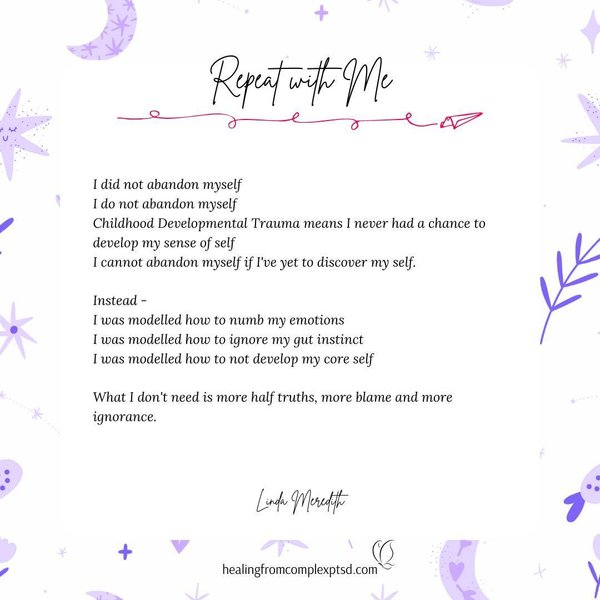 Repeat with Me
I did not abandon myself
I do not abandon myself
Childhood Developmental Trauma means I never had a chance to
develop my sense of self
I cannot abandon myself if I've yet to discover my self.
Instead -
I was modelled how to numb my emotions
I was modelled how to ignore my gut instinct
I was modelled how to not develop my core self
What I don't need is more half truths, more blame and more
ignorance.
Linda Meredith
healingfromcomplexptsd.com